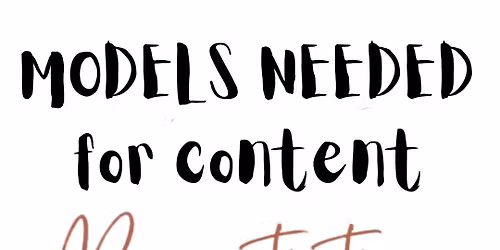 MODELS NEEDED
for content